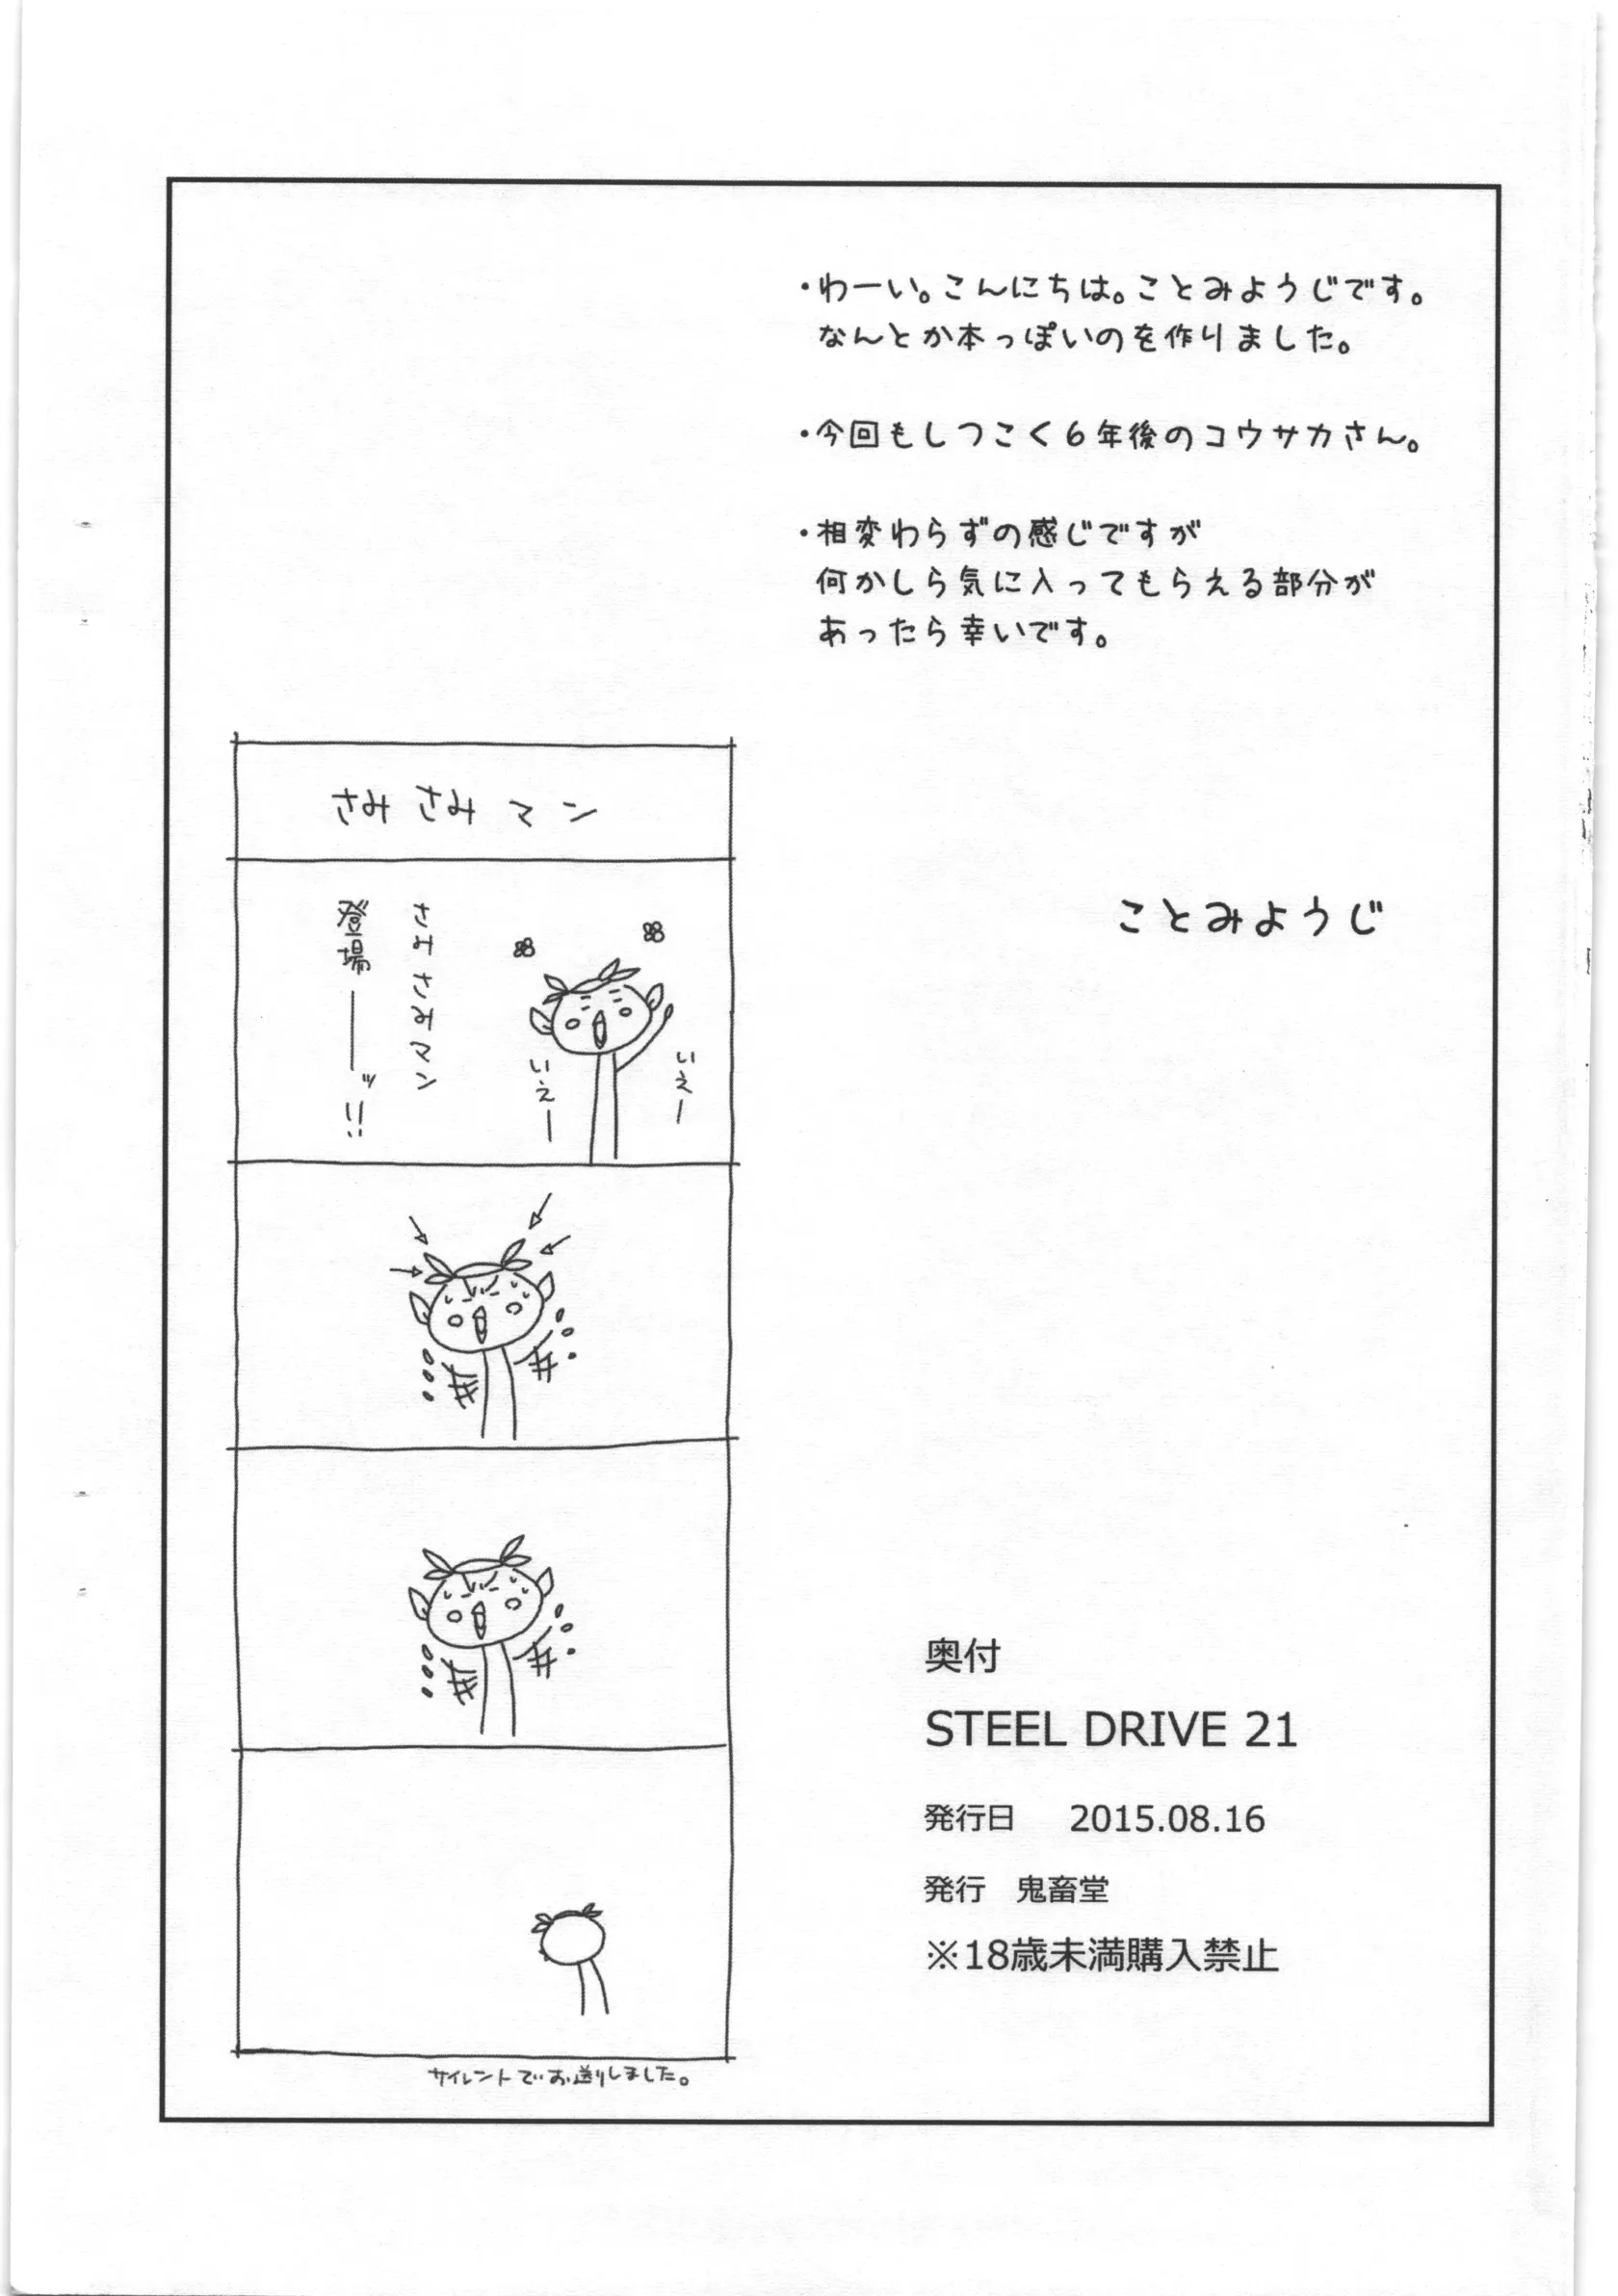 ・わーい。こんにちは。ことみようじです。
なんとか本っぽいのを作りました。
・今回もしつこく6年後のコウサカさん。
・相変わらずの感じですが
何かしら気に入ってもらえる部分が
あったら幸いです。
ことみようじ
さみさみマン
いえー
いえー
さみさみマン
登場――ッ!!
サイレントでお送りしました。
奥付
STEEL DRIVE 21
発行日 2015.08.16
発行 鬼畜堂
※18歳未満購入禁止